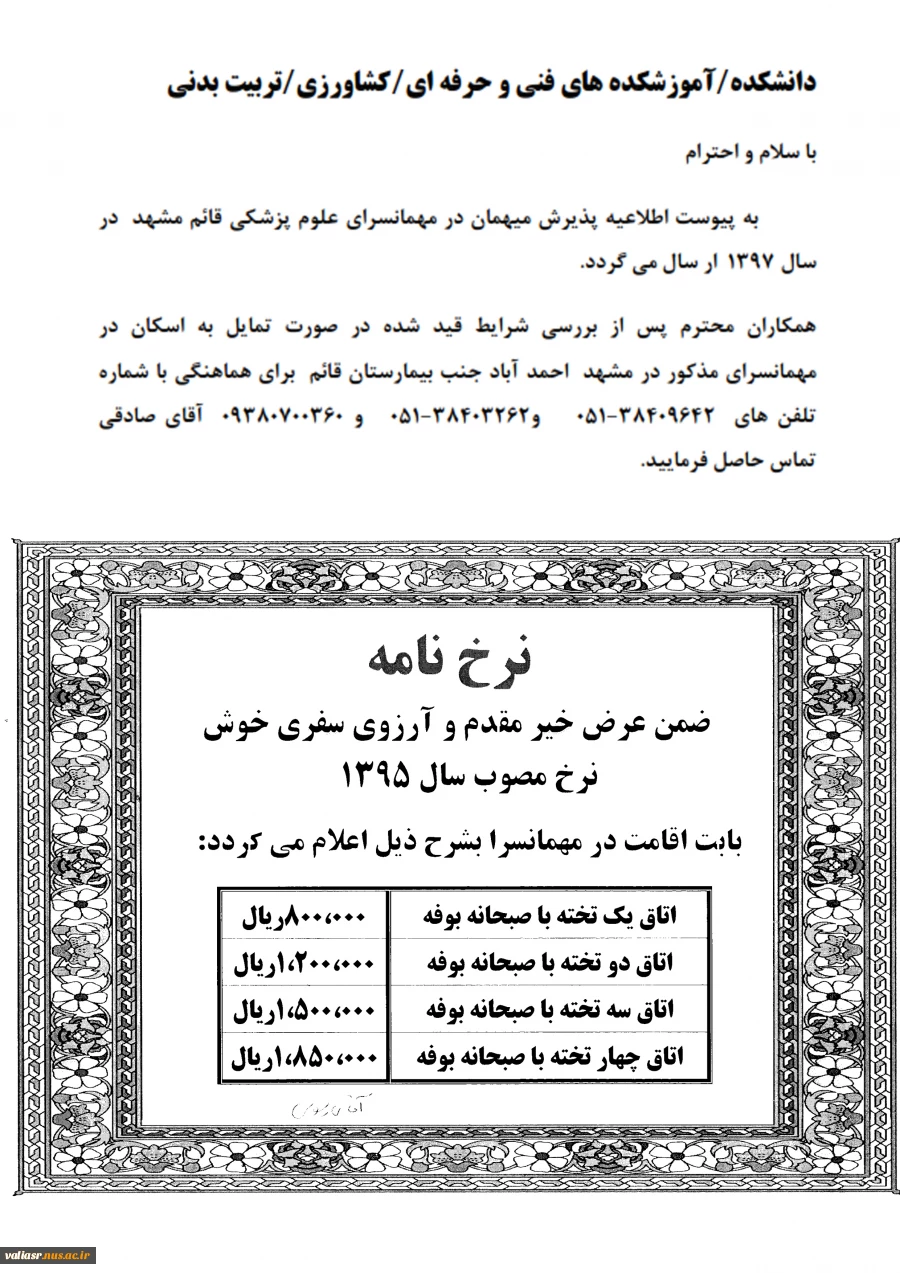 دانشکده/آموزشکده های فنی و حرفه ای/کشاورزی/تربیت بدنی
با سلام و احترام
به پیوست اطلاعیه پذیرش میهمان در مهمانسرای علوم پزشکی قائم مشهد در
سال ۱۳۹۷ ار سال می گردد.
همکاران محترم پس از بررسی شرایط قید شده در صورت تمایل به اسکان در
مهمانسرای مذکور در مشهد احمد آباد جنب بیمارستان قائم برای هماهنگی با شماره
تلفن های ۰۵۱-۳۸۴۰۹۶۴۲ و۰۵۱-۳۸۴۰۳۲۶۲ و ۰۹۳۸۰۷۰۰۳۶۰ آقای صادقی
تماس حاصل فرمایید.
نرخ نامه
ضمن عرض خیر مقدم و آرزوی سفری خوش
نرخ مصوب سال ۱۳۹۵
بابت اقامت در مهمانسرا بشرح ذیل اعلام می گردد:
اتاق یک تخته با صبحانه بوفه ۸۰۰،۰۰۰ریال
اتاق دو تخته با صبحانه بوفه ۱،۲۰۰،۰۰۰ریال
اتاق سه تخته با صبحانه بوفه ۱،۵۰۰،۰۰۰ریال
اتاق چهار تخته با صبحانه بوفه ۱،۸۵۰،۰۰۰ریال
valiasr.nus.ac.ir